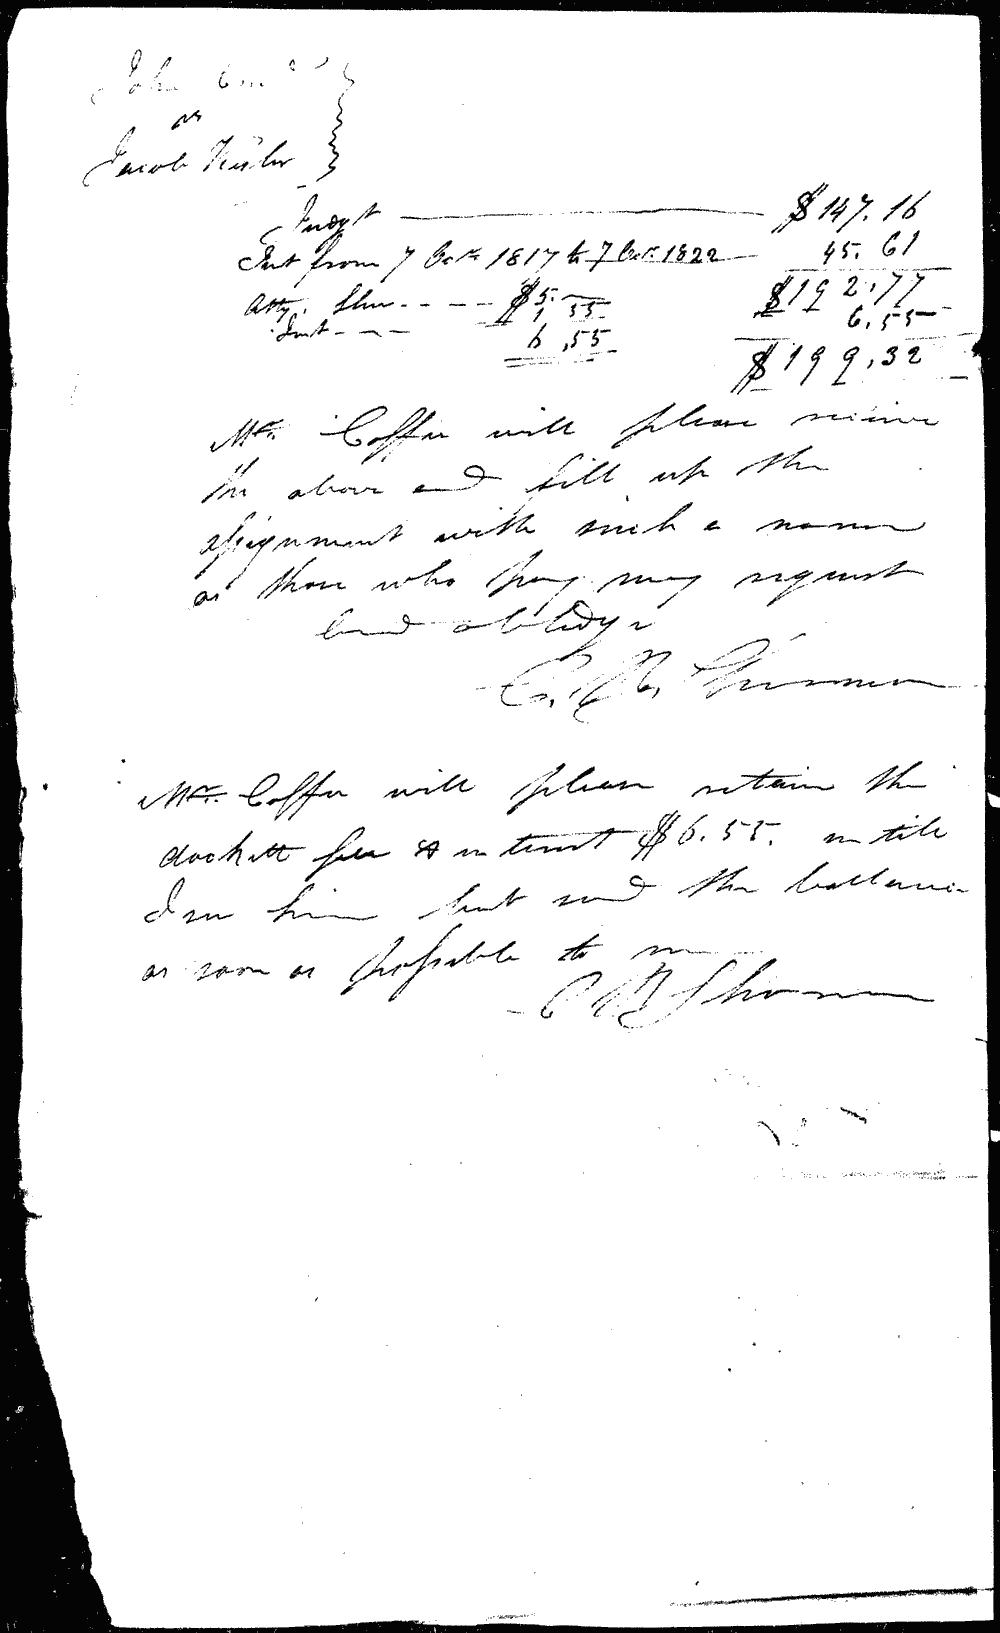 John
vs
Jacob
Judgt $147.16
Int from 7 Octr. 1817 to 7 Octr. 1822 45.61
$192.77
Atty. $5.— 6.55
Int 1 55
6,55
$199.32
Mr. Coffee will please receive
the above and fill up the
assignment with such a name
as those who pay may request
and oblidge
Mr. Coffee will please retain the
dockett fee & interest $6.55. untill
I see him but send the ballance
as soon as possible to me